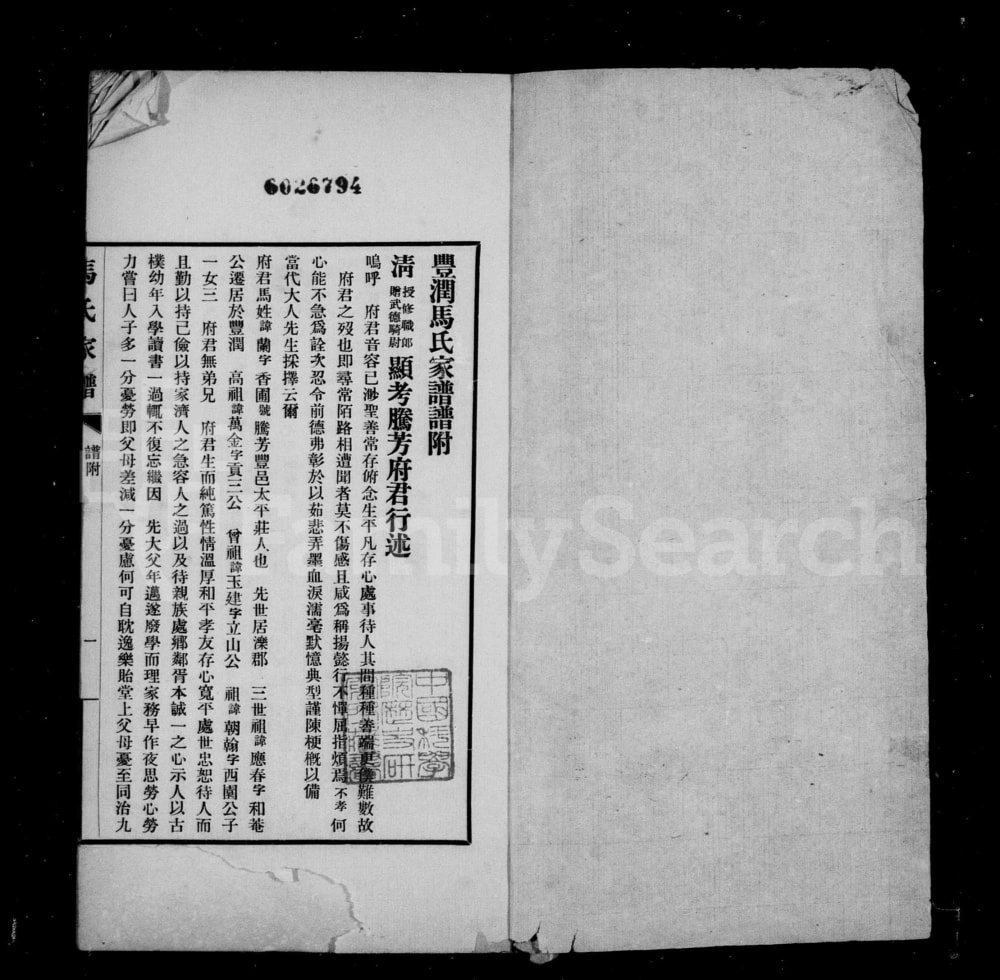 6026794
豐潤馬氏家譜譜附
清授修職郎贈武德騎尉顯考騰芳府君行述
嗚呼 府君音容已渺聖善常存俯念生平凡存心處事待人其間種種善端更僕難數故
府君之歿也即尋常陌路相遭聞者莫不傷感且咸為稱揚懿行不憚屈指煩焉不孝何
心能不急為詮次忍令前德弗彰於以茹悲弄墨血淚濡毫默憶典型謹陳梗概以備
當代大人先生採擇云爾
府君馬姓諱蘭字香圃號騰芳豐邑太平莊人也 先世居灤郡 三世祖諱應春字和菴
公遷居於豐潤 高祖諱萬金字貢三公 曾祖諱玉建字立山公 祖諱朝翰字西園公子
一女三 府君無弟兄 府君生而純篤性情溫厚和平孝友存心寬平處世忠恕待人而
且勤以持己儉以持家濟人之急容人之過以及待親族處鄉鄰胥本誠一之心示人以古
樸幼年入學讀書一過輒不復忘繼因 先大父年邁遂廢學而理家務早作夜思勞心勞
力嘗曰人子多一分憂勞即父母差減一分憂慮何可自耽逸樂貽堂上父母憂至同治九
馬氏家譜
譜附
一
FamilySearch